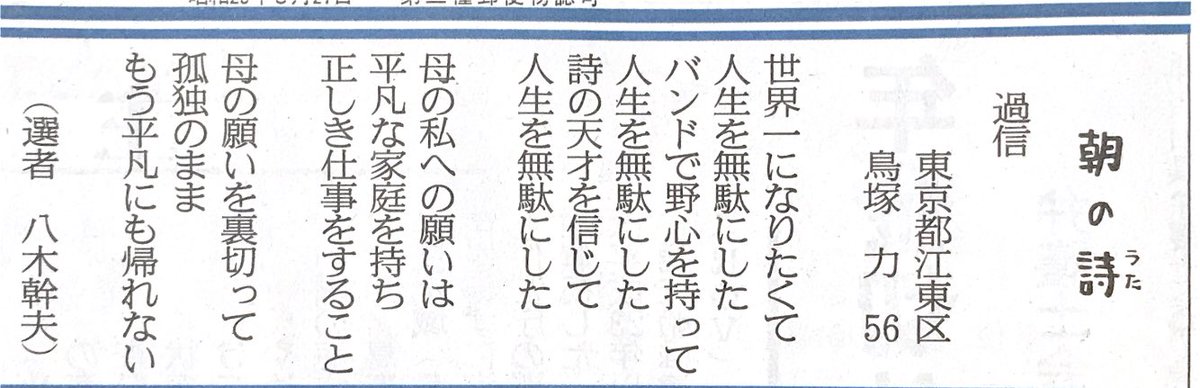 朝の詩
うた
過信
東京都江東区
鳥塚 力 56
世界一になりたくて
人生を無駄にした
バンドで野心を持って
人生を無駄にした
詩の天才を信じて
人生を無駄にした
母の私への願いは
平凡な家庭を持ち
正しき仕事をすること
母の願いを裏切って
孤独のまま
もう平凡にも帰れない
（選者 八木幹夫）